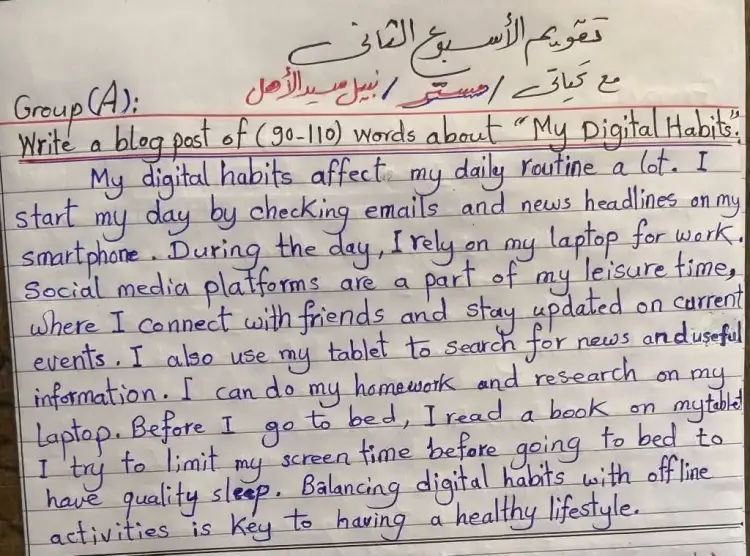 تقويم الأسبوع الثانى
مع تحياتى / مستر / نبيل سيد الأهل
Group (A):
Write a blog post of (90-110) words about "My Digital Habits".
My digital habits affect my daily routine a lot. I
start my day by checking emails and news headlines on my
smartphone. During the day, I rely on my laptop for work.
Social media platforms are a part of my leisure time,
where I connect with friends and stay updated on current
events. I also use my tablet to search for news and useful
information. I can do my homework and research on my
Laptop. Before I go to bed, I read a book on my tablet
I try to limit my screen time before going to bed to
have quality sleep. Balancing digital habits with offline
activities is key to having a healthy lifestyle.